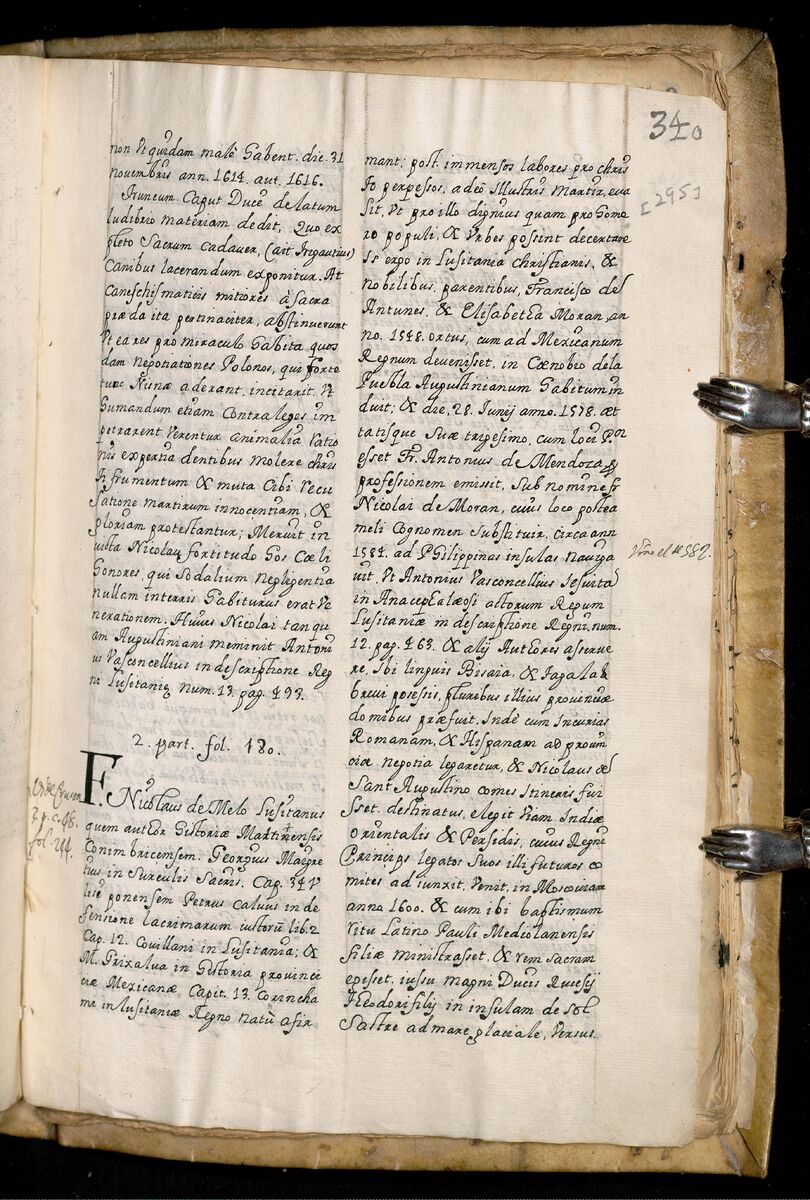 340
[295]
non Vt quidam malè Habent. die. 31
novembris ann. 1614. aut. 1616.
Iruneum Caput Duce delatum
ludibrio materiam dedit, Quo ex
pleto Sacrum cadaver, (ait Trigautius)
Canibus lacerandum exponitur. At
Canes chismaticis mitiores à sacra
præda ita pertinaciter, abstinuerunt
Vt ea res pro miraculo Habita quos
dam negotiationes Polonos, qui forte
tunc Nisnæ aderant, incitarit. Vt
Humandum etiam Contra leges im
petrarent Verentur animalia ratio
nis expertia dentibus molere chris
ti frumentum & muta Cibi recu
satione martirum innocentiam, &
gloriam protestantur; Meruit in
victa Nicolau fortitudo Hos Cæli
Honores, qui Sodalium negligentia
nullam interris Habiturus erat Ve
nerationem. Huius Nicolai tanqu
am Augustiniani meminit Antoni
us Vasconcellius in descriptione Reg
ni Lusitaniæ Num. 13. pag. 493.
2. part. fol. 180.
F. Nicolaus de Melo Lusitanus
quem autor Historiæ Martinensis
Conimbricensem. Georgius Maigre
tius in Surculis Sacris. Cap. 34 V
lisi ponensem Petrus Calvus in de
fensione lacrimarum iustorũ lib. 2
Cap. 12. Covillani in Lusitania; &
M. Grixalua in Historia provinci
æ Mexicanæ Capit. 13. Corincha
me in lusitaniæ Regno natũ asir
fol. 244.
mant; post. immensos labores pro chris
to perpessos, adeò Illustris Martir. eva
sit, Vt pro illo dignius quam pro Home
ro populi, & Vrbes possint decertare
Is ergo in Lusitania christianis, &
nobilibus, parentibus, Francisco de
Antunes, & Elisabetha Moran, an
no. 1548. ortus, cum ad Mexicanum
Regnum devenisset, in Cœnobio dela
Puebla Augustinianum Habitum in
duit; & die, 28. Iunij anno. 1578. æt
tatisque Suæ trigesimo, cum loci Por
esset Fr. Antonius de Mendoza,
professionem emissit, Sub nomine fr
Nicolai de Moran, cuius loco postea
meli Cognomen Substituir, circa ann
1584. ad Philippinas insulas Naviga
vit, Vt Antonius Vasconcellius Iesuita
in Anacephalæosi actorum Regum
Lusitaniæ in descriptione Regni, num.
12. pag. 463. & alij Autores asserue
re, Ibi linguis Bisaia, & Tagala
brevi posessis, pluribus illius provinciæ
domibus præfuit. Inde cum Incurias
Romanam, & Hispanam ad provin
ciæ negotia legaretur, & Nicolaus de
Sant Augustino comes Itineris fui
sset, destinatus, elegit Viam Indiæ
orientalis & Persidis, cuius Regni
Princips legatos Suos illi futuros co
mites adiunxit, Venit, in Moscoviam
anno 1600. & cum ibi baptismum
Ritu Latino Pauli Mediolanensis
filiæ ministrasset, & rem sacram
egesset, iussu magni Ducis Rucsij
Theodori filij in insulam de Sol
Sastre ad mare glaciale, Versus.